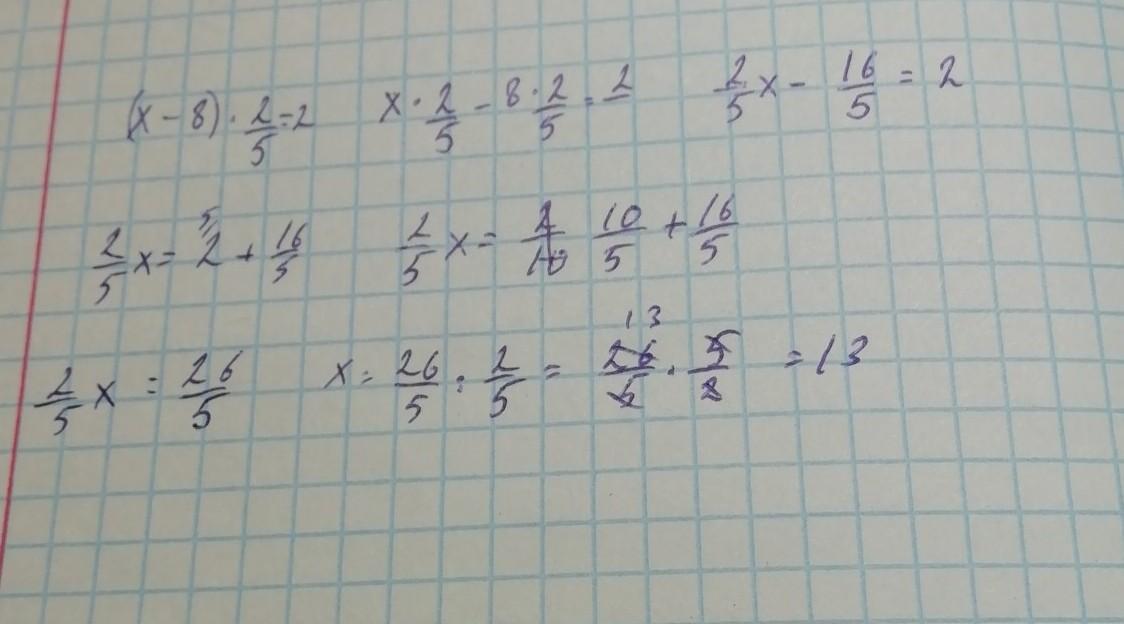 (x - 8) · 2/5 = 2    x · 2/5 - 8 · 2/5 = 2    2/5 x - 16/5 = 2
2/5 x = 2 + 16/5    2/5 x = 10/5 + 16/5
2/5 x = 26/5    x = 26/5 : 2/5 = 26/5 · 5/2 = 13